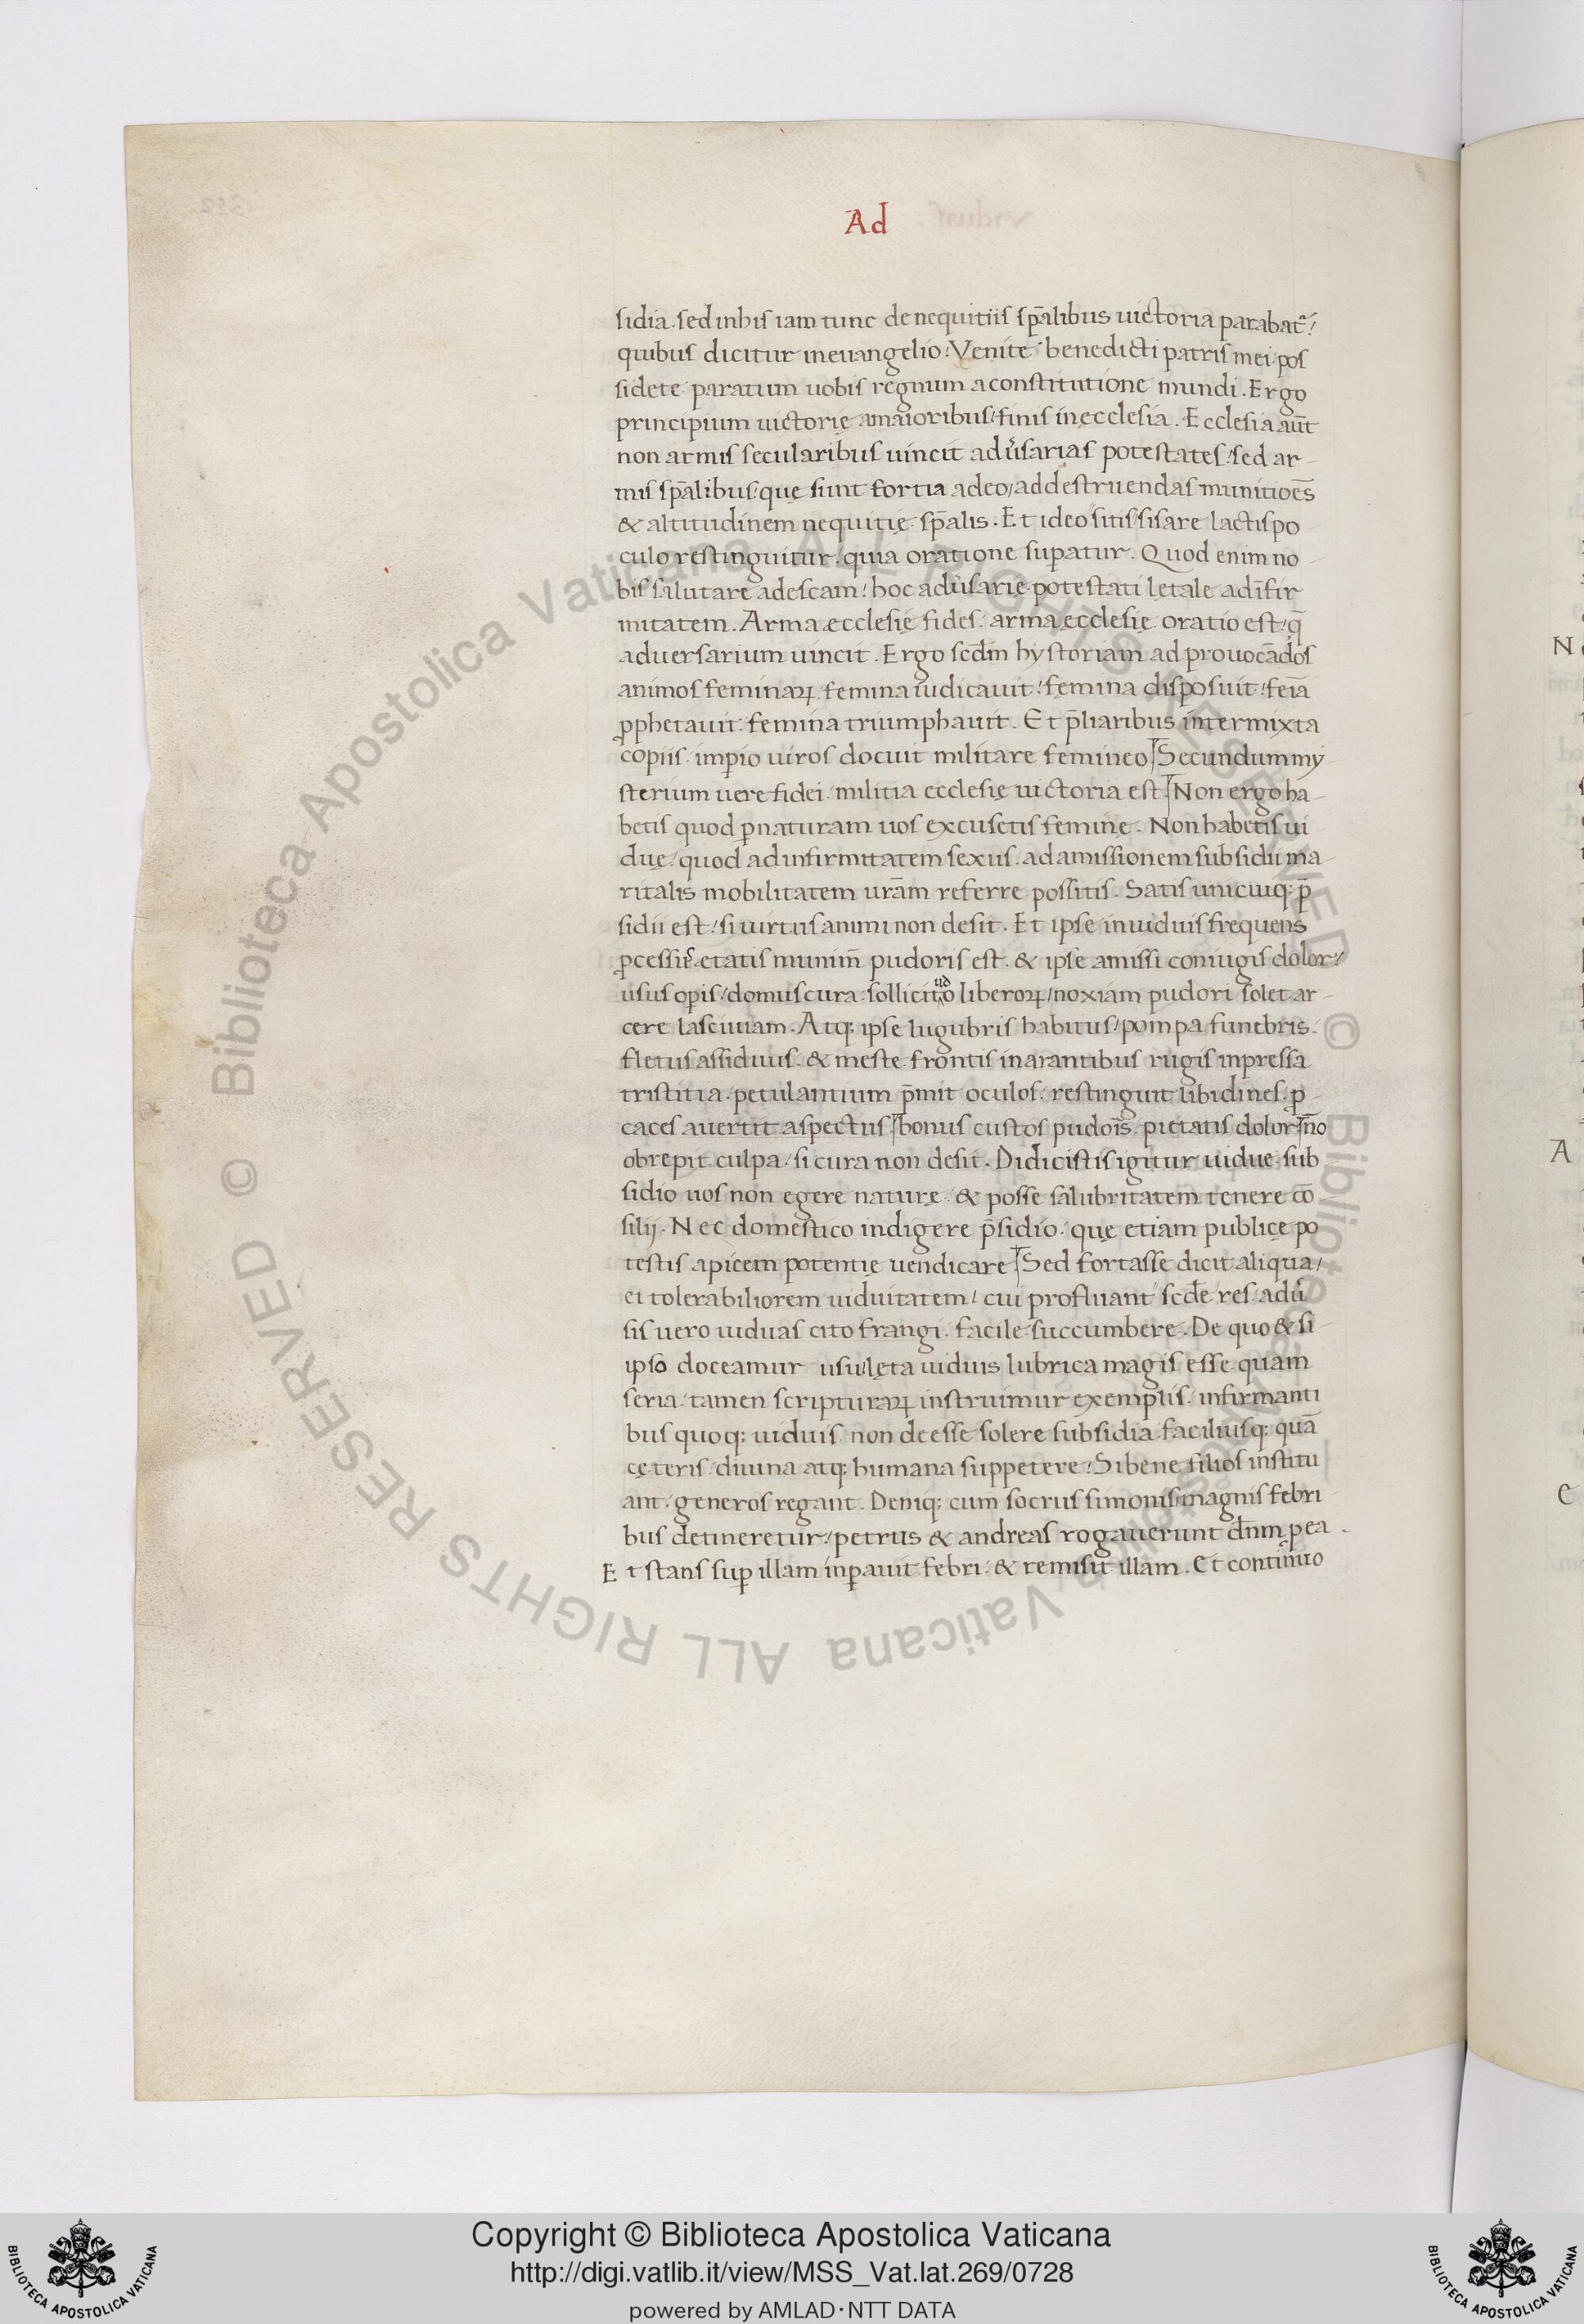 Ad
sidia. sed in his iam tunc de nequitiis sp̄alibus uictoria parabat᷑:
quibus dicitur in euangelio: Venite benedicti patris mei pos
sidete paratum uobis regnum a constitutione mundi. Ergo
principium uictorię a maioribus: finis in ęcclesia. Ecclesia aūt
non armis secularibus uincit adu̓sarias potestates: sed ar-
mis sp̄alibus: quę sunt fortia a deo/ ad destruendas munitioēs
& altitudinem nequitię sp̄alis. Et ideo sitis sisare lactis po-
culo restinguitur: quia oratione suꝑatur. Quod enim no-
bis salutare ad escam: hoc adu̓sarię potestati lętale ad īfir-
mitatem. Arma ecclesię fides. arma ęcclesię oratio est: q̄
aduersarium uincit. Ergo scd̄m hystoriam ad prouocādos
animos feminaꝝ. femina iudicauit: femina disposuit: feīa
ꝓphetauit: femina triumphauit. Et p̄liaribus intermixta
copiis. imꝑio uiros docuit militare femineo. Secundum my-
sterium uere fidei. militia ecclesię uictoria est. Non ergo ha-
betis quod ꝑ naturam uos excusetis feminę. Non habetis ui
duę: quod ad infirmitatem sexus. ad amissionem subsidii ma-
ritalis mobilitatem ur̄am referre possitis. Satis unicuiq; p̄
sidii est: si uirtus animi non desit. Et ipse in uiduis frequens
ꝓcessu᷑ etatis munim̄ pudoris est. & ipse amissi coniugis dolor:
usus oꝑis: domus cura: sollicitudo liberoꝝ: noxiam pudori solet ar-
cere lasciuiam. Atq; ipse lugubris habitus: pompa funebris.
fletus assiduus. & meste frontis inarantibus rugis inpressa
tristitia. petulantium p̄mit oculos. restinguit libidines. ꝓ
caces auertit aspectus. bonus custos pudoīs. pietatis dolor. nō
obrepit culpa: si cura non desit. Didicistis igitur uidue sub-
sidio uos non egere naturę. & posse salubritatem tenere cō
silij. Nec domestico indigere p̄sidio. quę etiam publicę po
testis apicem potentię uendicare. Sed fortasse dicit aliqua/
ei tolerabiliorem uiduitatem: cui profluant scd̄e res. adu̓
sis uero uiduas cito frangi. facile succumbere. De quo & si
ipso doceamur usu: lęta uiduis lubrica magis esse quam
seria. tamen scripturaꝝ instruimur exemplis. infirmanti
bus quoq; uiduis non deesse solere subsidia. faciliusq; quā
cęteris. diuina atq; humana suppetere: Si bene filios institu
ant. generos regant. Deniq; cum socrus simonis magnis febri
bus detineretur: petrus & andreas rogauerunt dn̄m ꝑ ea.
Et stans suꝑ illam inꝑauit febri. & remisit illam. Et continuo
Copyright © Biblioteca Apostolica Vaticana
http://digi.vatlib.it/view/MSS_Vat.lat.269/0728
powered by AMLAD·NTT DATA
BIBLIOTECA APOSTOLICA VATICANA
BIBLIOTECA APOSTOLICA VATICANA
© Biblioteca Apostolica Vaticana ALL RIGHTS RESERVED
© Biblioteca Apostolica Vaticana ALL RIGHTS RESERVED
N
A
C